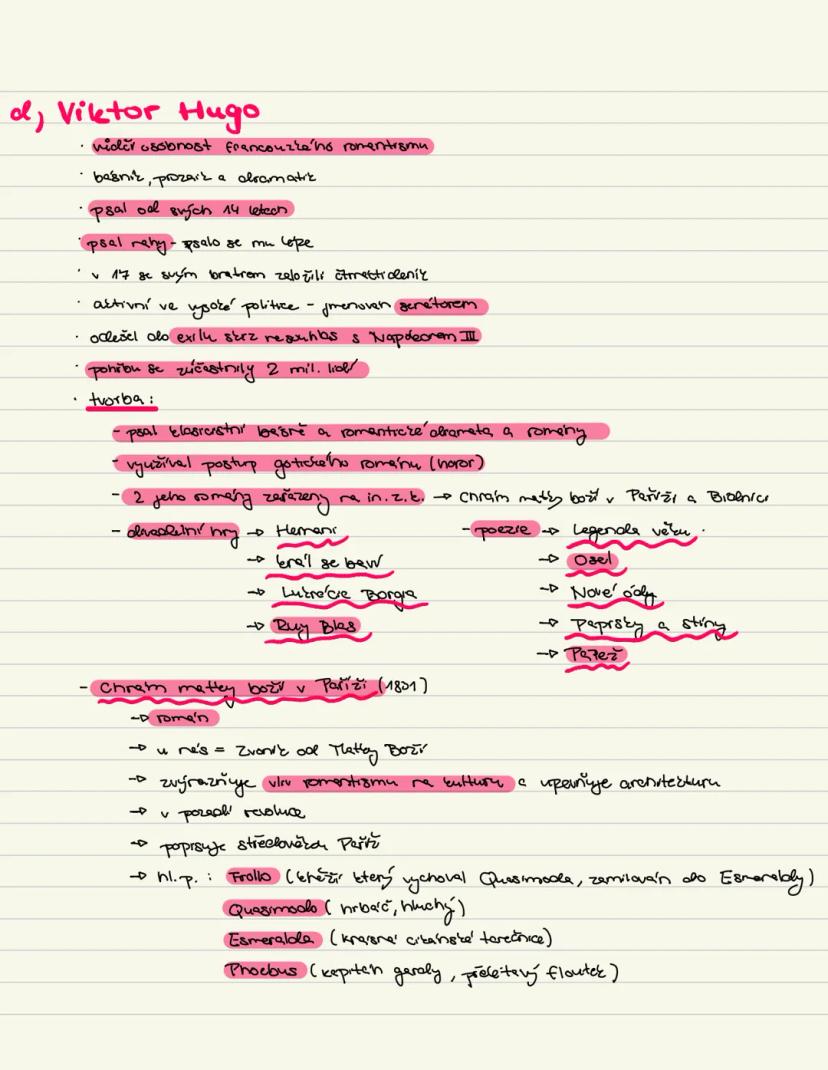 d, Viktor Hugo
· vůdčí osobnost francouzského romantismu
· básník, prozaik a dramatik
· psal od svých 14 letech
· psal nahý - psalo se mu lépe
· v 17 se svým bratrem založili čtrnáctideník
· aktivní ve vysoké politice - jmenován senátorem
· odešel do exilu skrz nesouhlas s Napoleonem III
· pohřbu se zúčastnily 2 mil. lidí
· tvorba:
- psal klasicistní básně a romantické dramata a romány
- využíval postup gotického románu (horor)
- 2 jeho romány zařazeny na in.z.k. → Chrám matky boží v Paříži a Bídníci
- divadelní hry → Hernani - poezie → Legenda věků.
→ král se baví → Osel
→ Lukrécie Borgia → Nové ódy
→ Ruy Blas → Paprsky a stíny
→ Pařež
- Chrám matky boží v Paříži (1831)
→ román
→ u nás = Zvoník od Matky Boží
→ zvýrazňuje vliv romantismu na kulturu a upevňuje architekturu
→ v pozadí revoluce
→ popisuje středověkou Paříž
→ hl.p. : Frollo (kněží který vychoval Quasimoda, zamilován do Esmeraldy)
Quasimodo (hrbáč, hluchý)
Esmeralda (krásná cikánská tanečnice)
Phoebus (kapitán gardy, přelétavý floutek)